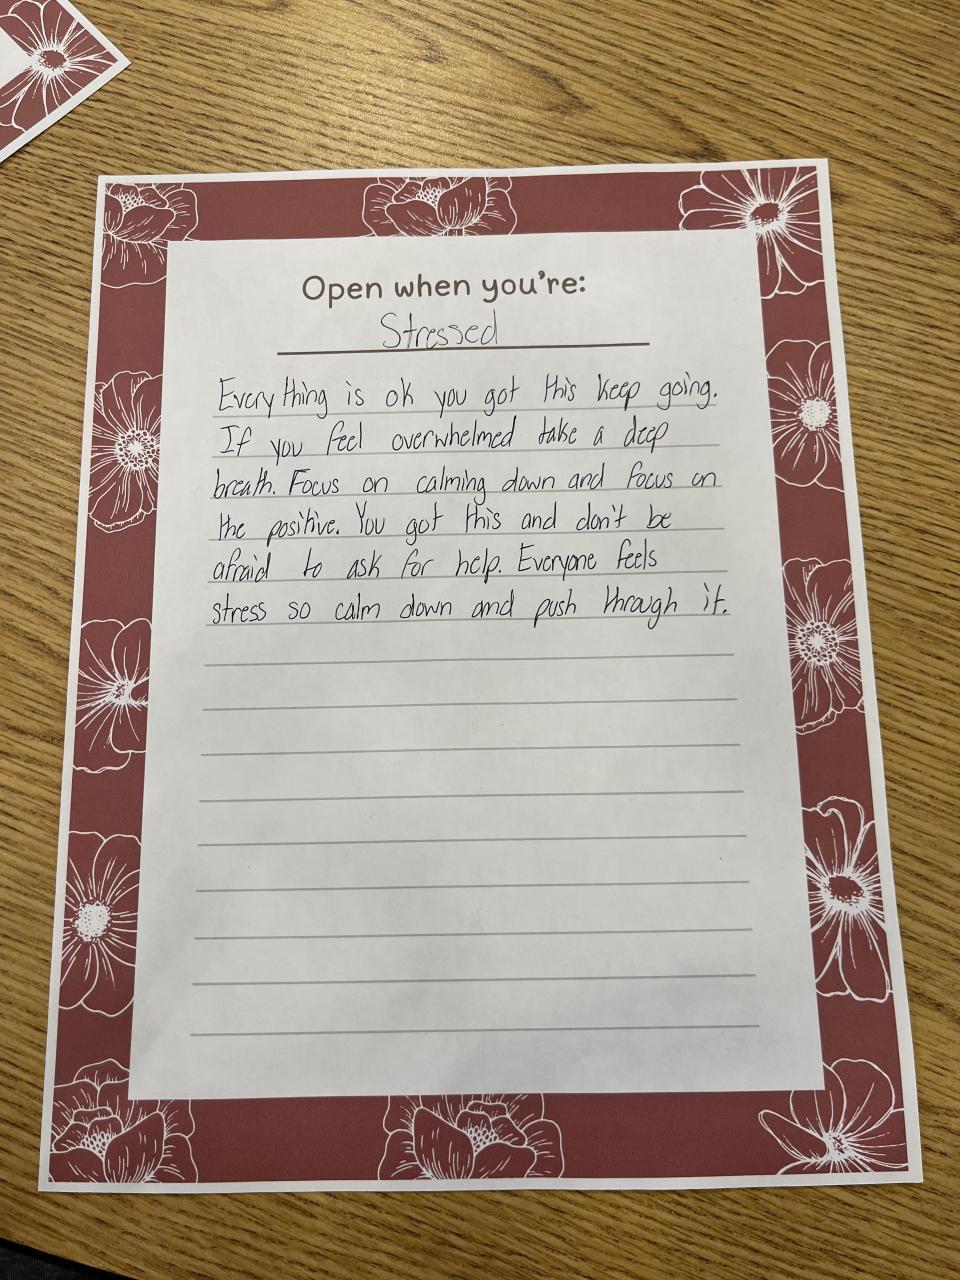 Open when you're:
Stressed
Everything is ok you got this keep going.
If you feel overwhelmed take a deep
breath. Focus on calming down and focus on
the positive. You got this and don't be
afraid to ask for help. Everyone feels
stress so calm down and push through it.